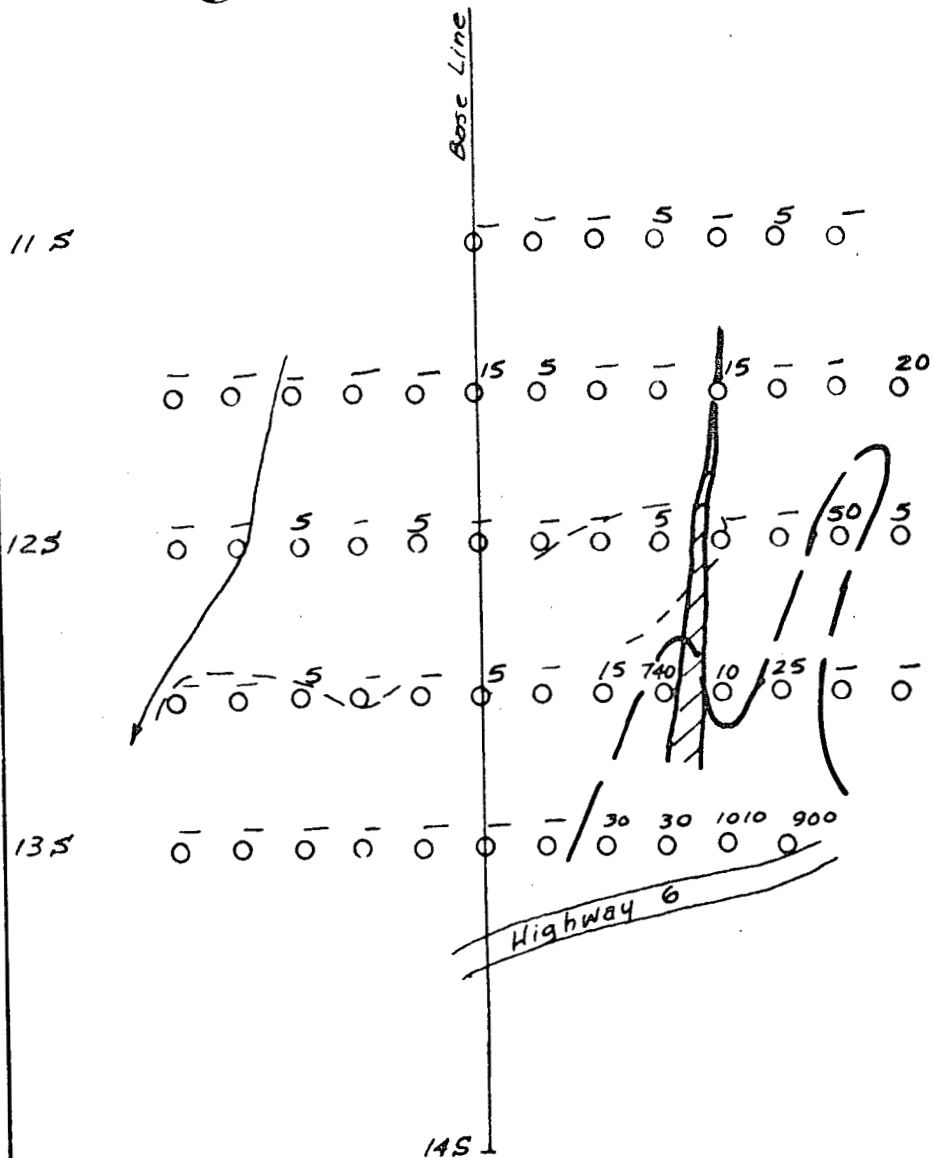 Base Line
11 S
— — — 5 — 5 —
— — — — — 15 5 — — 15 — — 20
12S
— — 5 — 5 — — — 5 — — 50 5
— — 5 — — 5 — 15 740 10 25 — —
13S
— — — — — — — 30 30 1010 900
Highway 6
14S